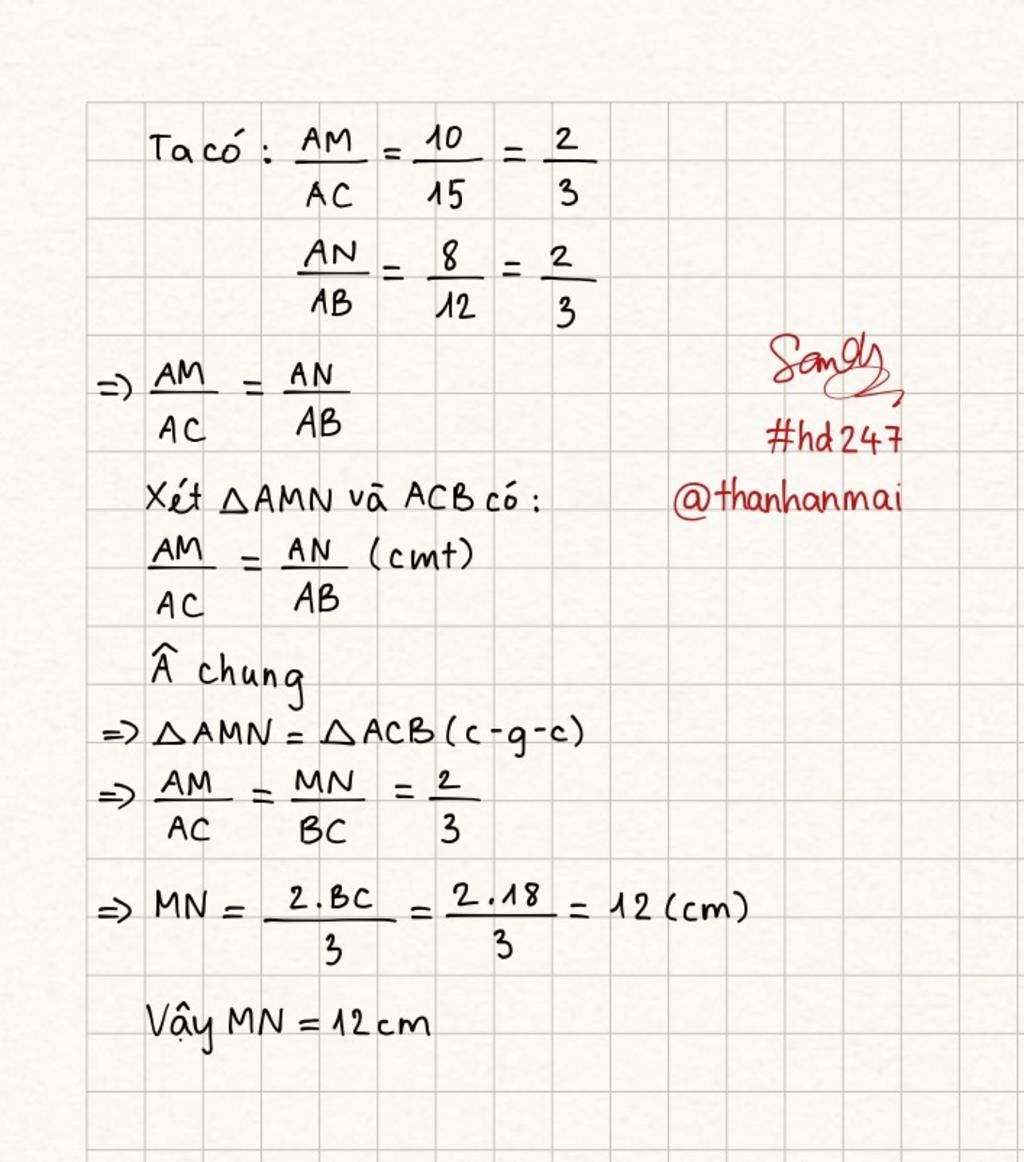 Ta có : AM/AC = 10/15 = 2/3
AN/AB = 8/12 = 2/3
=> AM/AC = AN/AB
Sandy
#hd247
Xét △AMN và ACB có :
@thanhanmai
AM/AC = AN/AB (cmt)
Â chung
=> △AMN = △ACB (c-g-c)
=> AM/AC = MN/BC = 2/3
=> MN = 2.BC/3 = 2.18/3 = 12 (cm)
Vậy MN = 12 cm